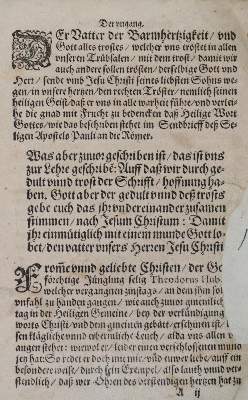 Der eingang.
DEr Vatter der Barmhertzigkeit / vnd
Gott alles trostes / welcher vns tröstet in allen
vnseren Trübsalen / mit dem trost / damit wir
auch andere sollen trösten / derselbige Gott vnd
Herr / sende vnd Jesu Christi seines liebsten Sohns we-
gen / in vnsere hertzen / den rechten Tröster / nemlich seinen
heiligen Geist / daß er vns in alle warheit führe / vnd verlei-
he die gnad mit Frucht zu bedencken daß Heilige Wort
Gottes / wie das beschriben stehet im Sendbrieff deß Hei-
ligen Apostels Pauli an die Römer.
Was aber zuuor geschriben ist / das ist vns
zur Lehre geschribē: Auff daß wir durch ge-
dult vnnd trost der Schrifft / hoffnung ha-
ben. Gott aber der gedult vnnd deß trosts
gebe euch das ihr vnder einander zusamen
stimmen / nach Jesum Christum: Damit
ihr einmütiglich mit einem munde Gott lo-
bet / den vatter vnsers Herren Jesu Christi
FRomme vnnd geliebte Christen / der Ge
förchtige Jüngling selig Theodorus Hub.
welcher vergangnen zinstags / an dem
zu handen gangen / wie auch zuuor
tag in der Heiligen Gemeine / bey der verkündigung
worts Christi / vnd dem gemeinen gebätt / erschinen ist /
sen klägliche vnnd erbermliche Leich / alda vns allen v
augen stehet: wiewol er / leider einen verschlossenen mund
jetz hat: So redet er doch mit mir / vnd euwer liebe / auff ein
besondere weiß / durch sein Exempel / also lauth vnnd ver-
stendlich / daß wer Ohren des verstendigen hertzen hat zu
A ij